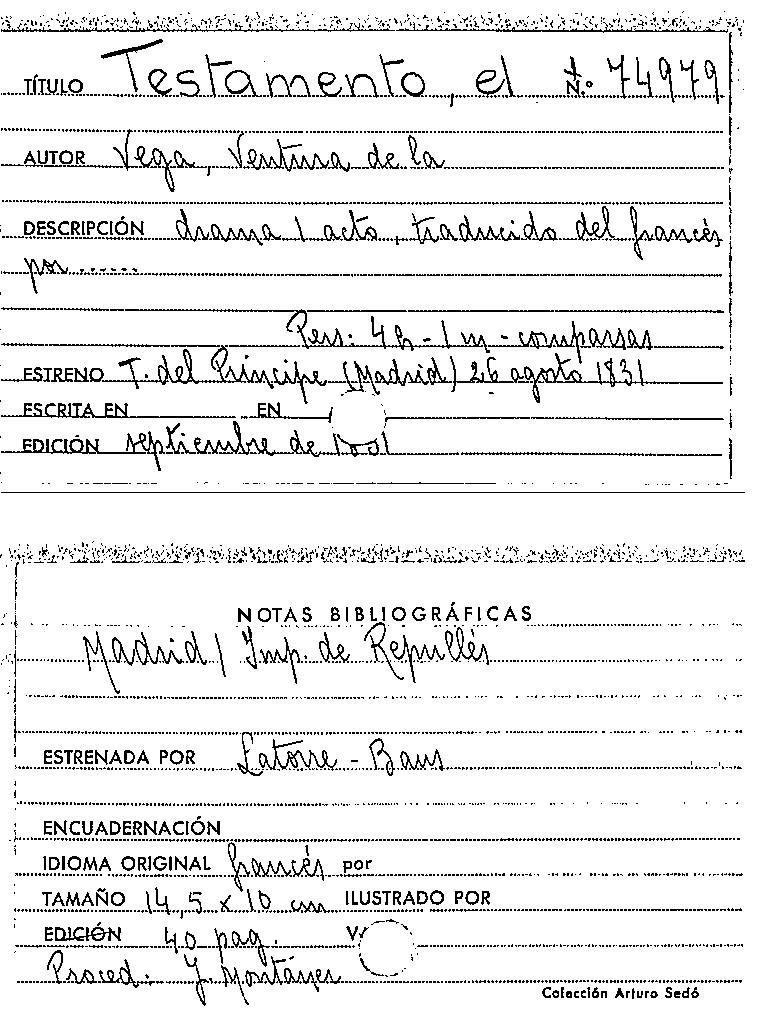 TÍTULO Testamento, el N.º 74979
AUTOR Vega, Ventura de la
DESCRIPCIÓN drama 1 acto, traducido del francés
por ......
Pers: 4h - 1m - comparsas
ESTRENO T. del Príncipe (Madrid) 26 agosto 1831
ESCRITA EN EN
EDICIÓN septiembre de
NOTAS BIBLIOGRÁFICAS
Madrid / Imp. de Repullés
ESTRENADA POR Latorre - Baus
ENCUADERNACIÓN
IDIOMA ORIGINAL francés por
TAMAÑO 14,5 x 10 cm ILUSTRADO POR
EDICIÓN 40 pag.
Proced: J. Montaner
Colección Arturo Sedó